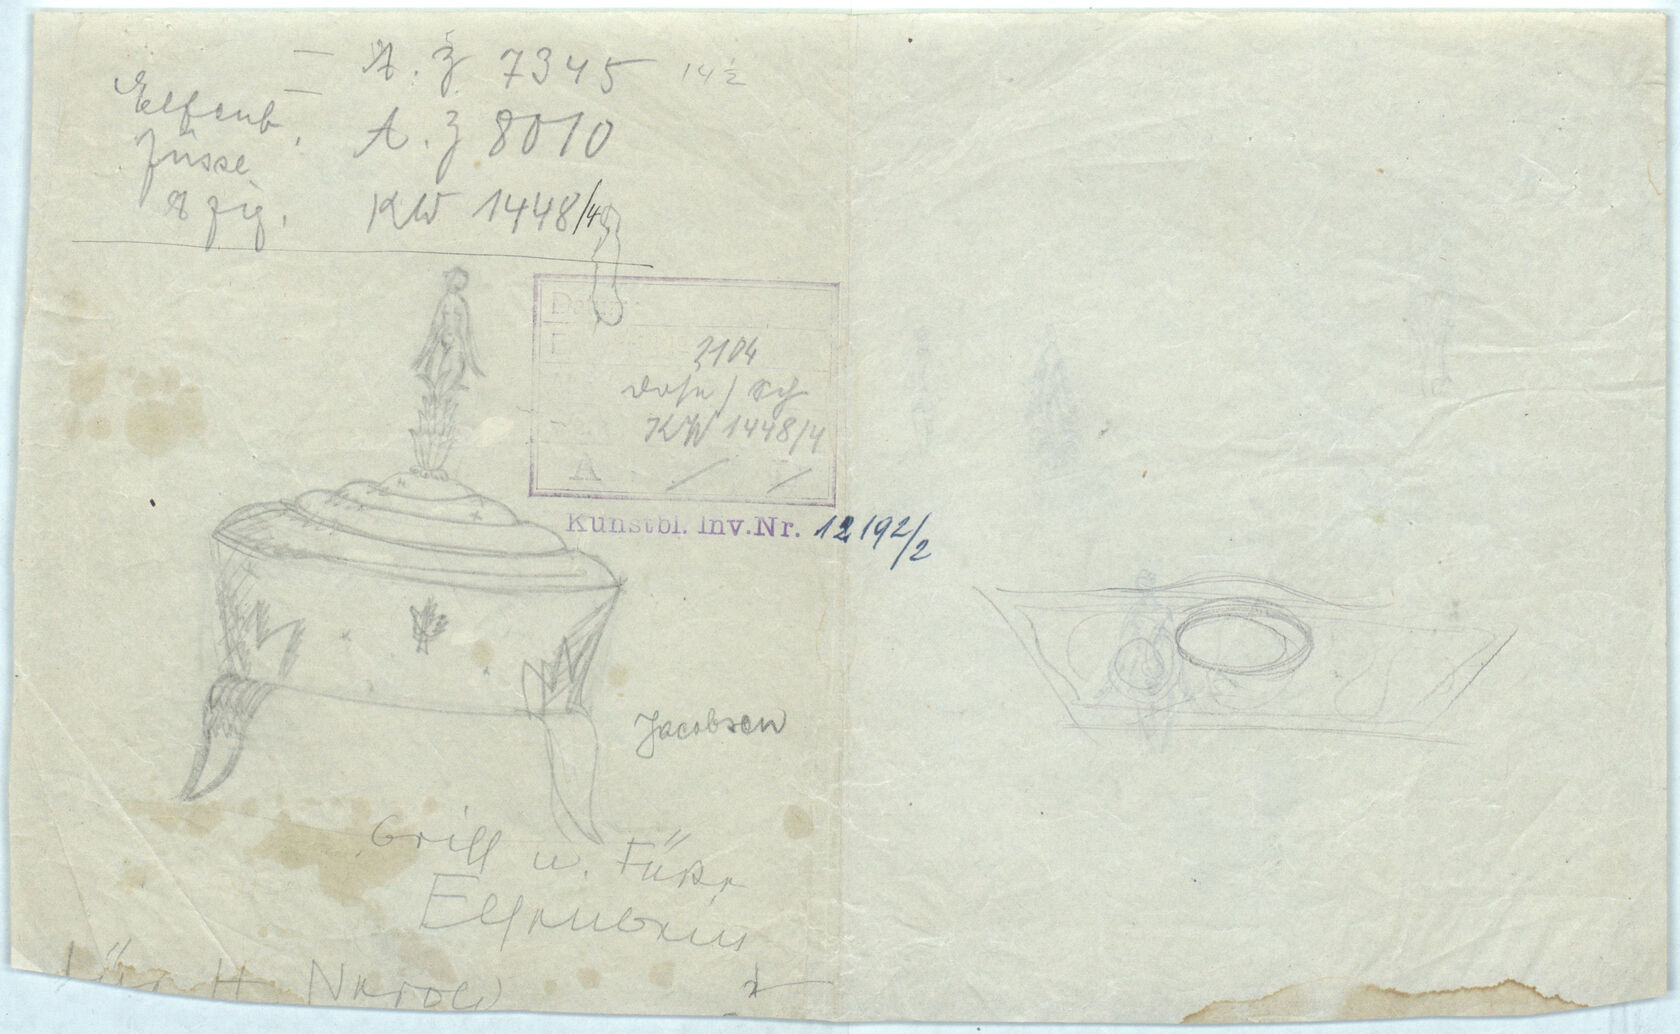 A. Z 7345 14 1/2
Elfenb. A. Z 8010
Füsse
& Fig. KW 1448/4
2104
Dose / Sch
KW 1448/4
A / /
Kunstbl. Inv.Nr. 12192/2
Jacobsen
Griff u. Füße
Elfenbein
H. Nerold